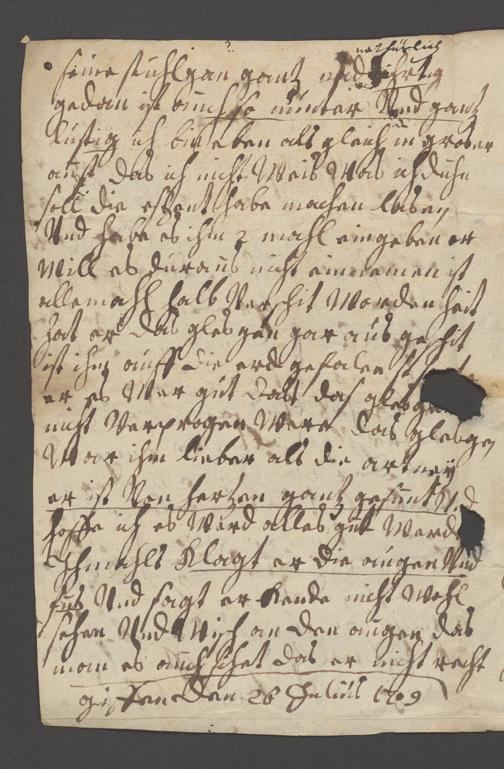 natürlich
seine stuhlgan gantz
gedan ist auch so munter Und gantz
lustig ich bin eben als gleich in groser
angst das ich nicht Weis Was ich duhn
soll die esent habe machen lasen
Und habe es ihm 2 mahl eingeben er
Will es duraus nicht einnemen ist
allemahl halb Verschit Worden heit
hat er das glesgen gar aus geschit
ist ihm auff die erd gefalen
er es Wer gut das das glesgen
nicht Verprogen Were das glesgen
War ihm lieber als die artney
er ist Von hertzen gantz gesunt Und
hoffe ich es Wird alles gut Werden
Ihmahls klagt er die augen Und
Und sagt er kende nicht Wohl
sehen Und Mich an den augen das
man es auch sihet das er nicht recht
den 26 Julius 1709